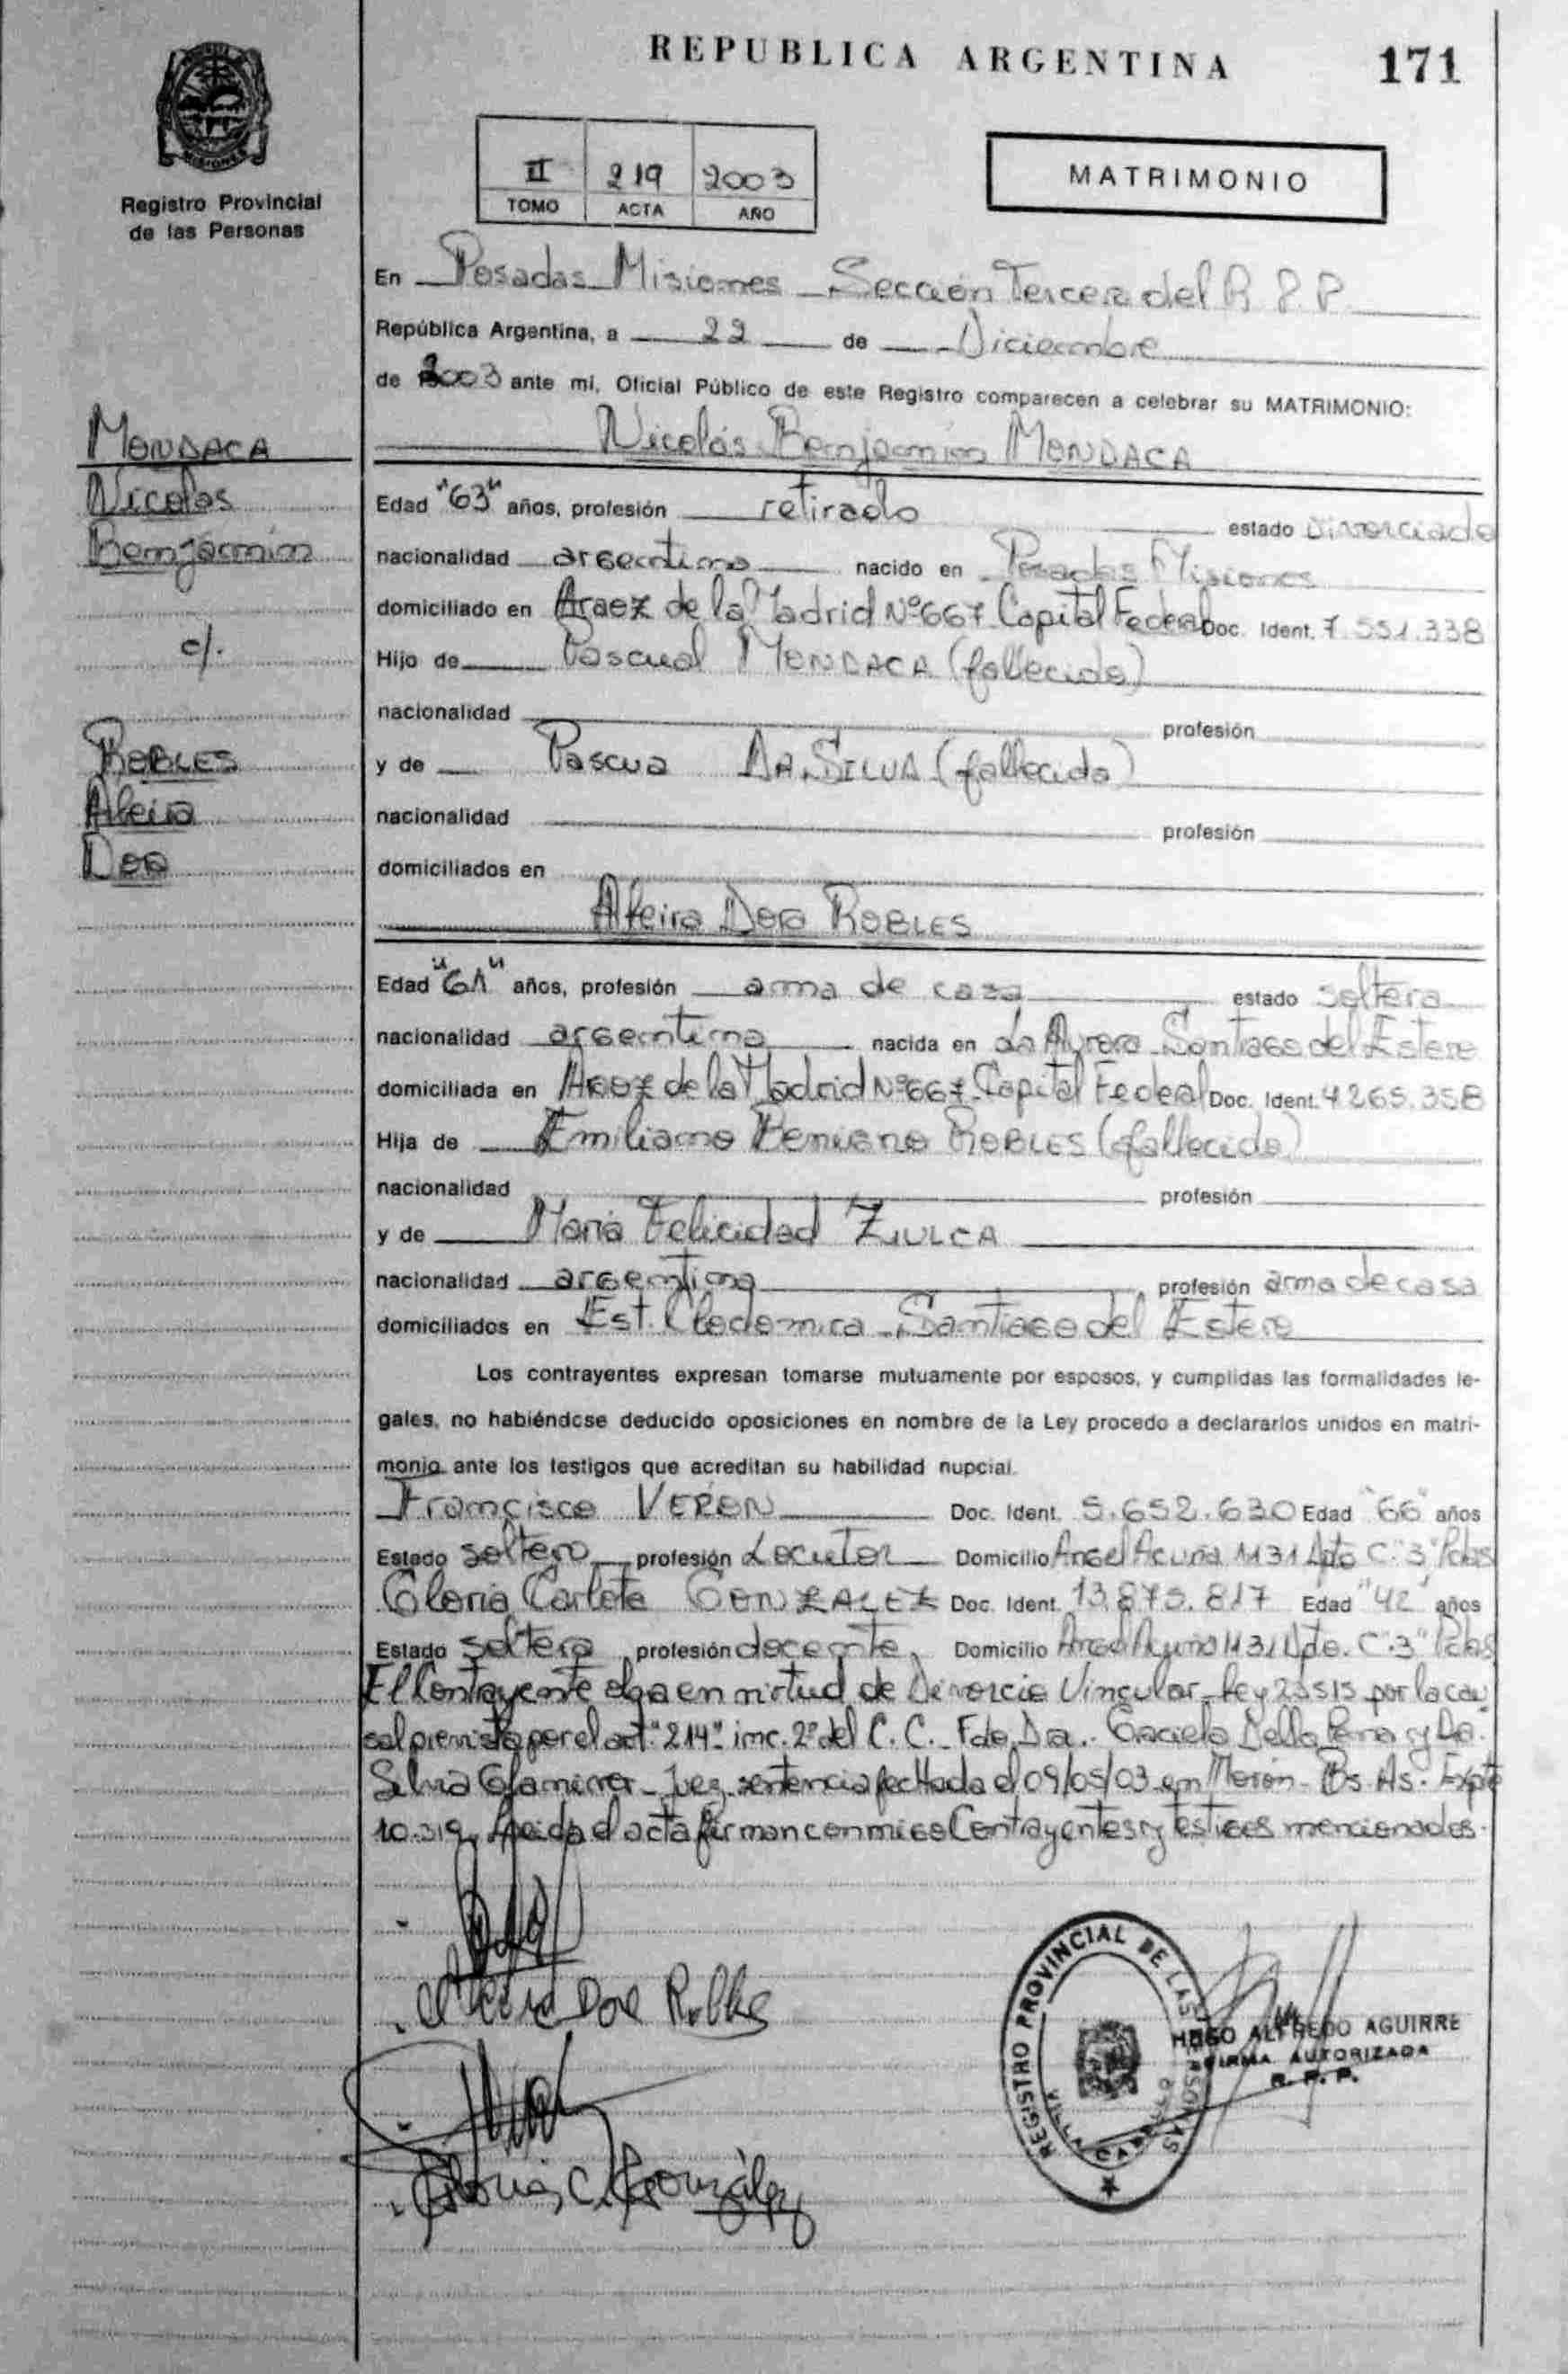 REPUBLICA ARGENTINA
171
MISIONES
Registro Provincial
de las Personas
II 219 2003
TOMO ACTA AÑO
MATRIMONIO
En Posadas Misiones Sección Tercera del R P P
República Argentina, a 22 de Diciembre
de 2003 ante mi, Oficial Público de este Registro comparecen a celebrar su MATRIMONIO:
Nicolás Benjamín MONDACA
MONDACA
Nicolas
Benjamin
c/.
ROBLES
Alcira
Dora
Edad "63" años, profesión retirado estado Divorciado
nacionalidad argentino nacido en Posadas Misiones
domiciliado en Araoz de la Madrid Nº667 Capital Federal Doc. Ident. 7.551.338
Hijo de Pascual MONDACA (fallecido)
nacionalidad profesión
y de Pascua DA SILVA (fallecida)
nacionalidad profesión
domiciliados en
Alcira Dora ROBLES
Edad "61" años, profesión ama de casa estado soltera
nacionalidad argentina nacida en La Aurora Santiago del Estero
domiciliada en Araoz de la Madrid Nº667 Capital Federal Doc. Ident. 4.265.358
Hija de Emiliano Benigno ROBLES (fallecido)
nacionalidad profesión
y de Maria Felicidad ZIULCA
nacionalidad argentina profesión ama de casa
domiciliados en Est. Clodomira Santiago del Estero
Los contrayentes expresan tomarse mutuamente por esposos, y cumplidas las formalidades le-
gales, no habiéndose deducido oposiciones en nombre de la Ley procedo a declararlos unidos en matri-
monio ante los testigos que acreditan su habilidad nupcial.
Francisco VERON Doc. Ident. 5.652.630 Edad "66" años
Estado soltero profesión Locutor Domicilio Angel Acuña 1131 Dpto C."3" Pdas
Gloria Carlota GONZALEZ Doc. Ident. 13.875.817 Edad "42" años
Estado soltera profesión docente Domicilio Angel Acuña 1131 Dpto. C."3" Pdas
El Contrayente obra en virtud de Divorcio Vincular Ley 23515 por la cau
sal prevista por el art. "214" inc. 2º del C. C. Fdo. Dra. Graciela Della y Da.
Silvia Juez sentencia fechada el 09/05/03 en Morón Bs. As. Expte
10.319, Leida el acta firman conmigo Contrayentes y testigos mencionados.
Alcira Dora Robles
Gloria C. González
REGISTRO PROVINCIAL DE LAS PERSONAS
HUGO ALFREDO AGUIRRE
FIRMA AUTORIZADA
R. P. P.